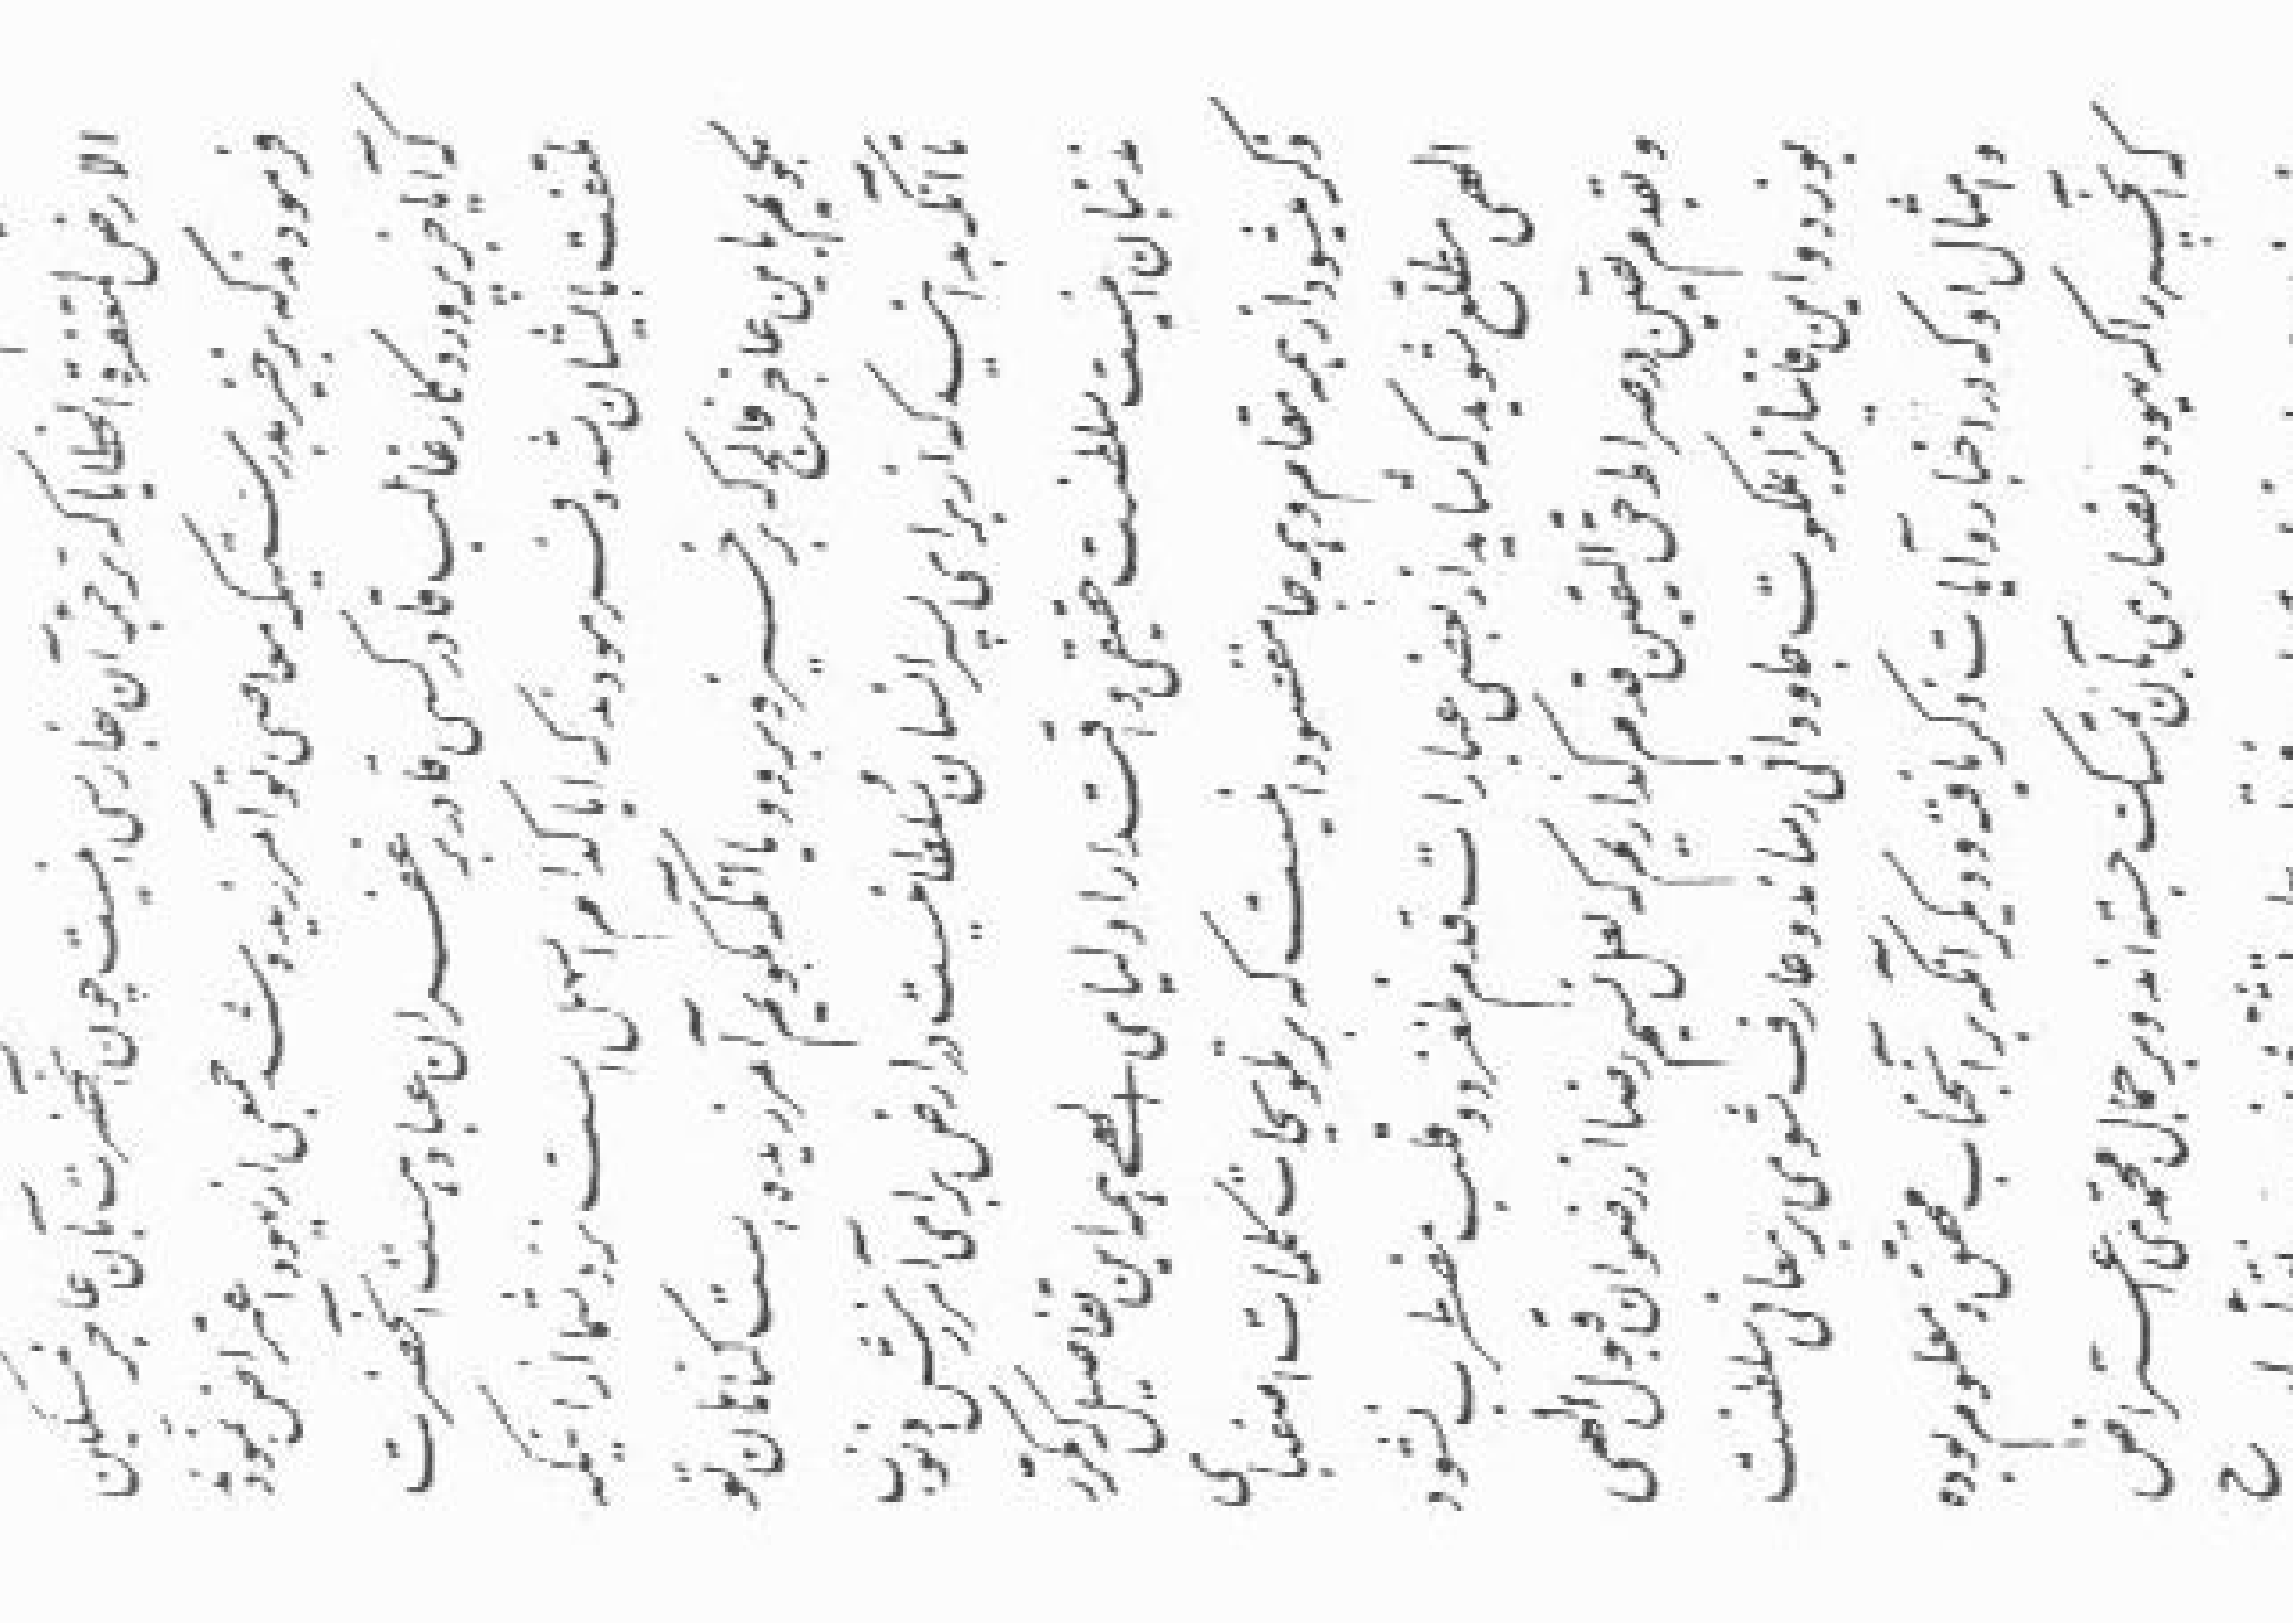 الارض لمغفرة الخطایا که ترجمه آن بفارسی اینست چون حضرت بآن عاجز مسکین
فرمود که برخیز بدرستیکه معاصی تو آمرزیده شد جمعی از یهود اعتراض نمودند
که آیا جز پروردگار غالب قادر کسی قادر بر غفران عباد هست آنحضرت
ملتفت بایشان شده فرمودند که آیا کدام اسهل است نزد شما از اینکه
بگویم باین عاجز فالج که برخیز و برو و یا آنکه بگویم آمرزیده شد گناهان تو
تا آنکه بدانید که از برای پسر انسان سلطانیست در ارض برای آمرزش ذنوب
مذنبان اینست سلطنت حقیقی و اقتدار اولیای الهی همه این تفاصیل که مکرر
ذکر میشود از همه مقام و همه جا مقصود اینست که بر تلویحات کلمات اصفیای
الهی مطلع شوید که شاید از بعضی عبارات قدم نلغزد و قلب مضطرب نشود
و بقدم یقین در صراط حق الیقین قدم گذاریم که لعل نسیم رضا از رضوان قبول الهی
بوزد و این فانیانرا بملکوت جاودانی رساند و عارف شوی بر معانی سلطنت
و امثال او که در اخبار و آیات ذکر یافته و دیگر آنکه بر آنجناب محقق و معلوم بوده
که آنچه را که یهود و نصاری بآن تمسک جسته‌اند و بر جمال احمدی اعتراض